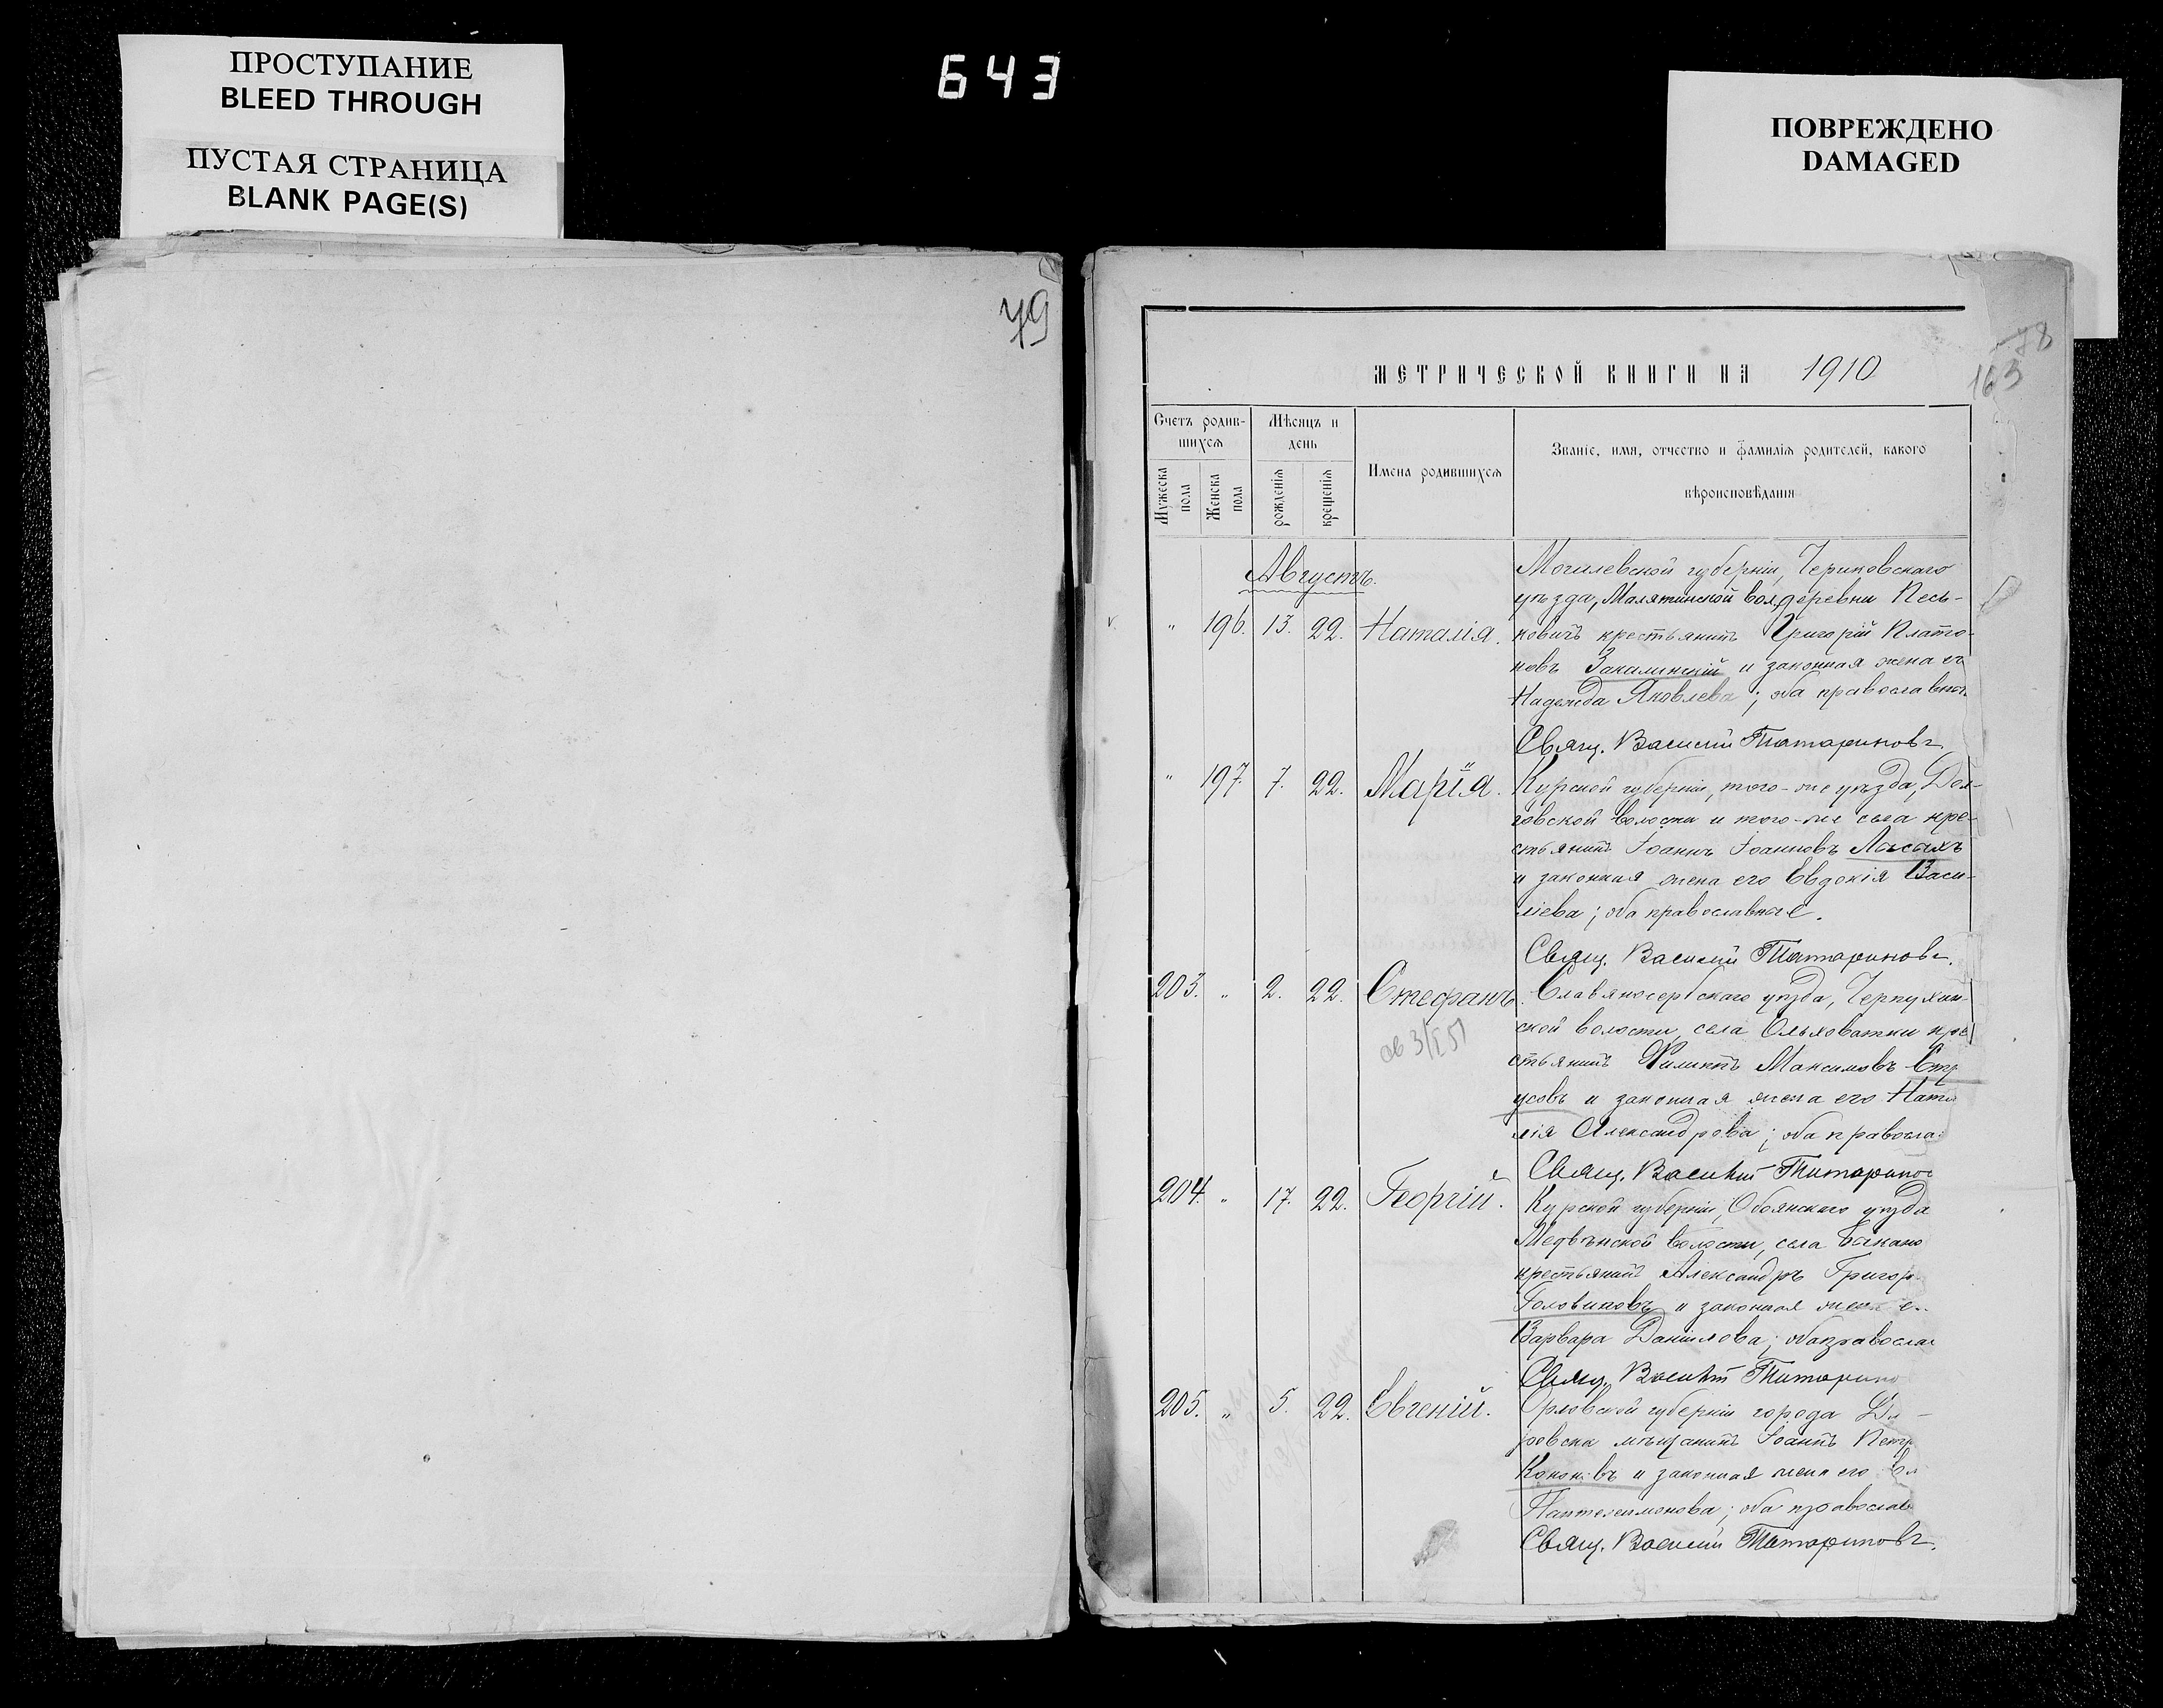 ПРОСТУПАНИЕ
BLEED THROUGH
ПУСТАЯ СТРАНИЦА
BLANK PAGE(S)
643
ПОВРЕЖДЕНО
DAMAGED
79
78
163
МЕТРИЧЕСКОЙ КНИГИ НА 1910
Счетъ родив-
шихся
Мужеска пола
Женска пола
Мѣсяцъ и
день
рожденія
крещенія
Имена родившихся
Званіе, имя, отчество и фамилія родителей, какого
вѣроисповѣданія
Августъ.
" 196. 13. 22. Наталія.
Могилевской губерніи, Чериковскаго
уѣзда, Малятинской вол., деревни Песь-
ковичъ крестьянинъ Григорій Плато-
новъ Закалинскій и законная жена его
Надежда Яковлева; оба православн.
Свящ. Василій Татариновъ.
" 197. 7. 22. Марія.
Курской губерніи, того-же уѣзда, Дол-
говской волости и того-же села кре-
стьянинъ Іоаннъ Іоанновъ Лысыхъ
и законная жена его Евдокія Васи-
ліева; оба православные.
Свящ. Василій Татариновъ.
203. " 2. 22. Стефанъ.
Славяносербскаго уѣзда, Черкухин-
ской волости, села Ольховатки кре
стьянинъ Филиппъ Максимовъ Стр
усовъ и законная жена его Ната
лія Александрова; оба правосла
Свящ. Василій Татаринов
204. " 17. 22. Георгій.
Курской губерніи, Обоянскаго уѣзда
Медвѣнской волости, села
крестьянинъ Александръ Григор
Головиновъ и законная жена е
Варвара Даніилова; оба правосла
Свящ. Василій Татарино
205. " 5. 22. Евгеній.
Орловской губерніи города
ровска мѣщанинъ Іоаннъ Петр
и законная жена его
Пантелеимонова; оба православ
Свящ. Василій Татариновъ.